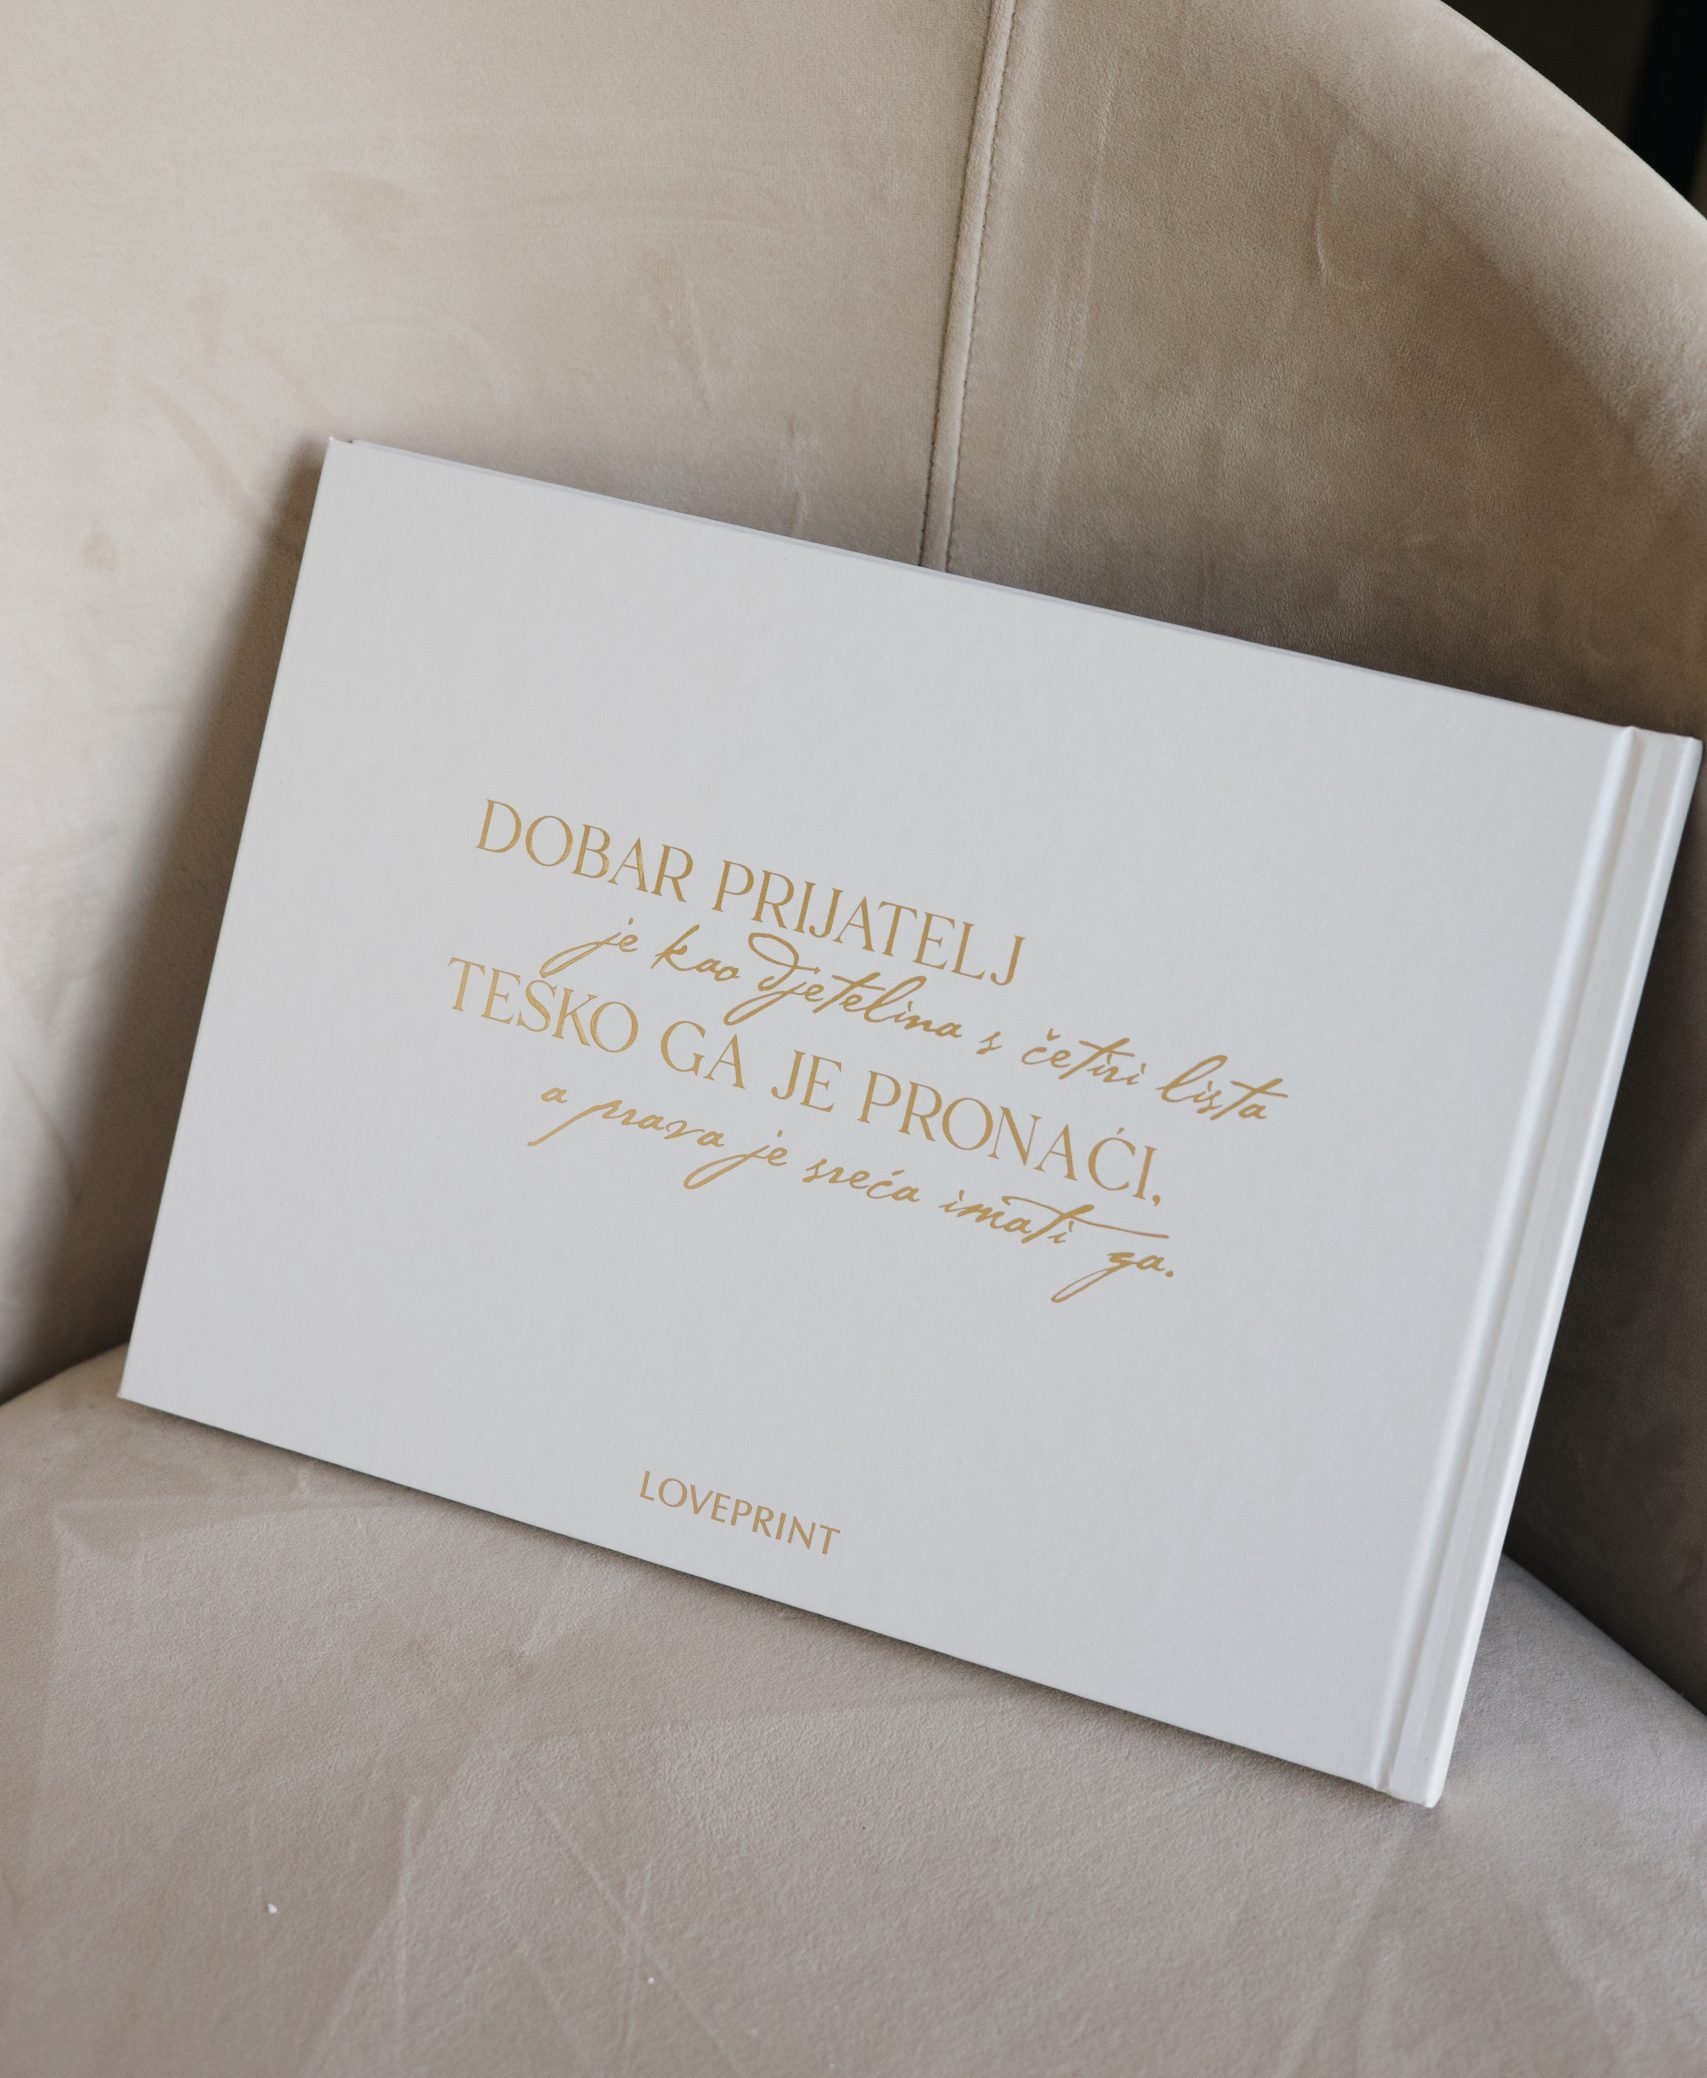 DOBAR PRIJATELJ
je kao djetelina s četiri lista
TEŠKO GA JE PRONAĆI,
a prava je sreća imati ga.
LOVEPRINT